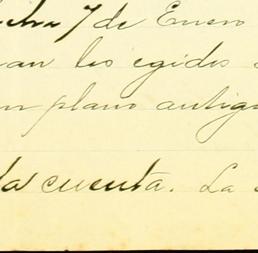 7 de Enero
an los egidos
plano antig
da cuenta. La